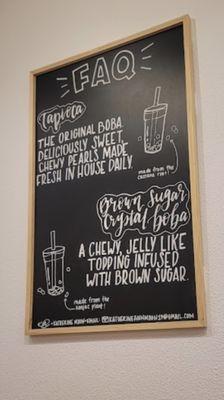 FAQ
Tapioca
THE ORIGINAL BOBA.
DELICIOUSLY SWEET,
CHEWY PEARLS MADE
FRESH IN HOUSE DAILY.
made from the
cassava root!
Brown Sugar
Crystal Boba
A CHEWY, JELLY LIKE
TOPPING INFUSED
WITH BROWN SUGAR.
made from the
konjac plant!